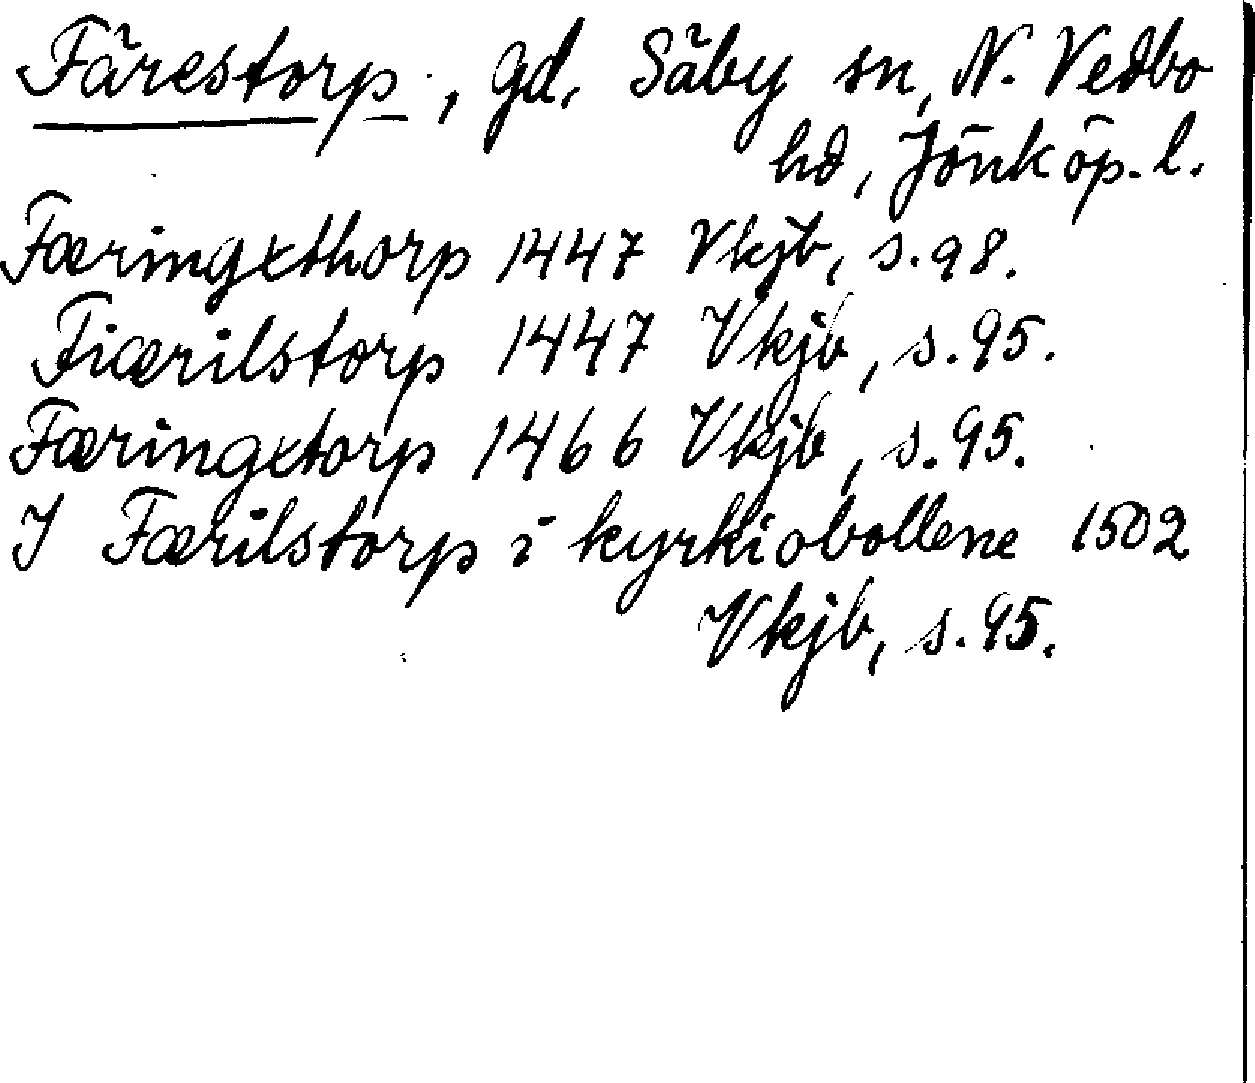 Färestorp, gd, Säby sn, N. Vedbo
hd, Jönköp. l.
Færingxthorp 1447 Vkjb, s. 98.
Fiærilstorp 1447 Vkjb, s. 95.
Færingxtorp 1466 Vkjb, s. 95.
J Færilstorp i kyrkiobollene 1502
Vkjb, s. 95.